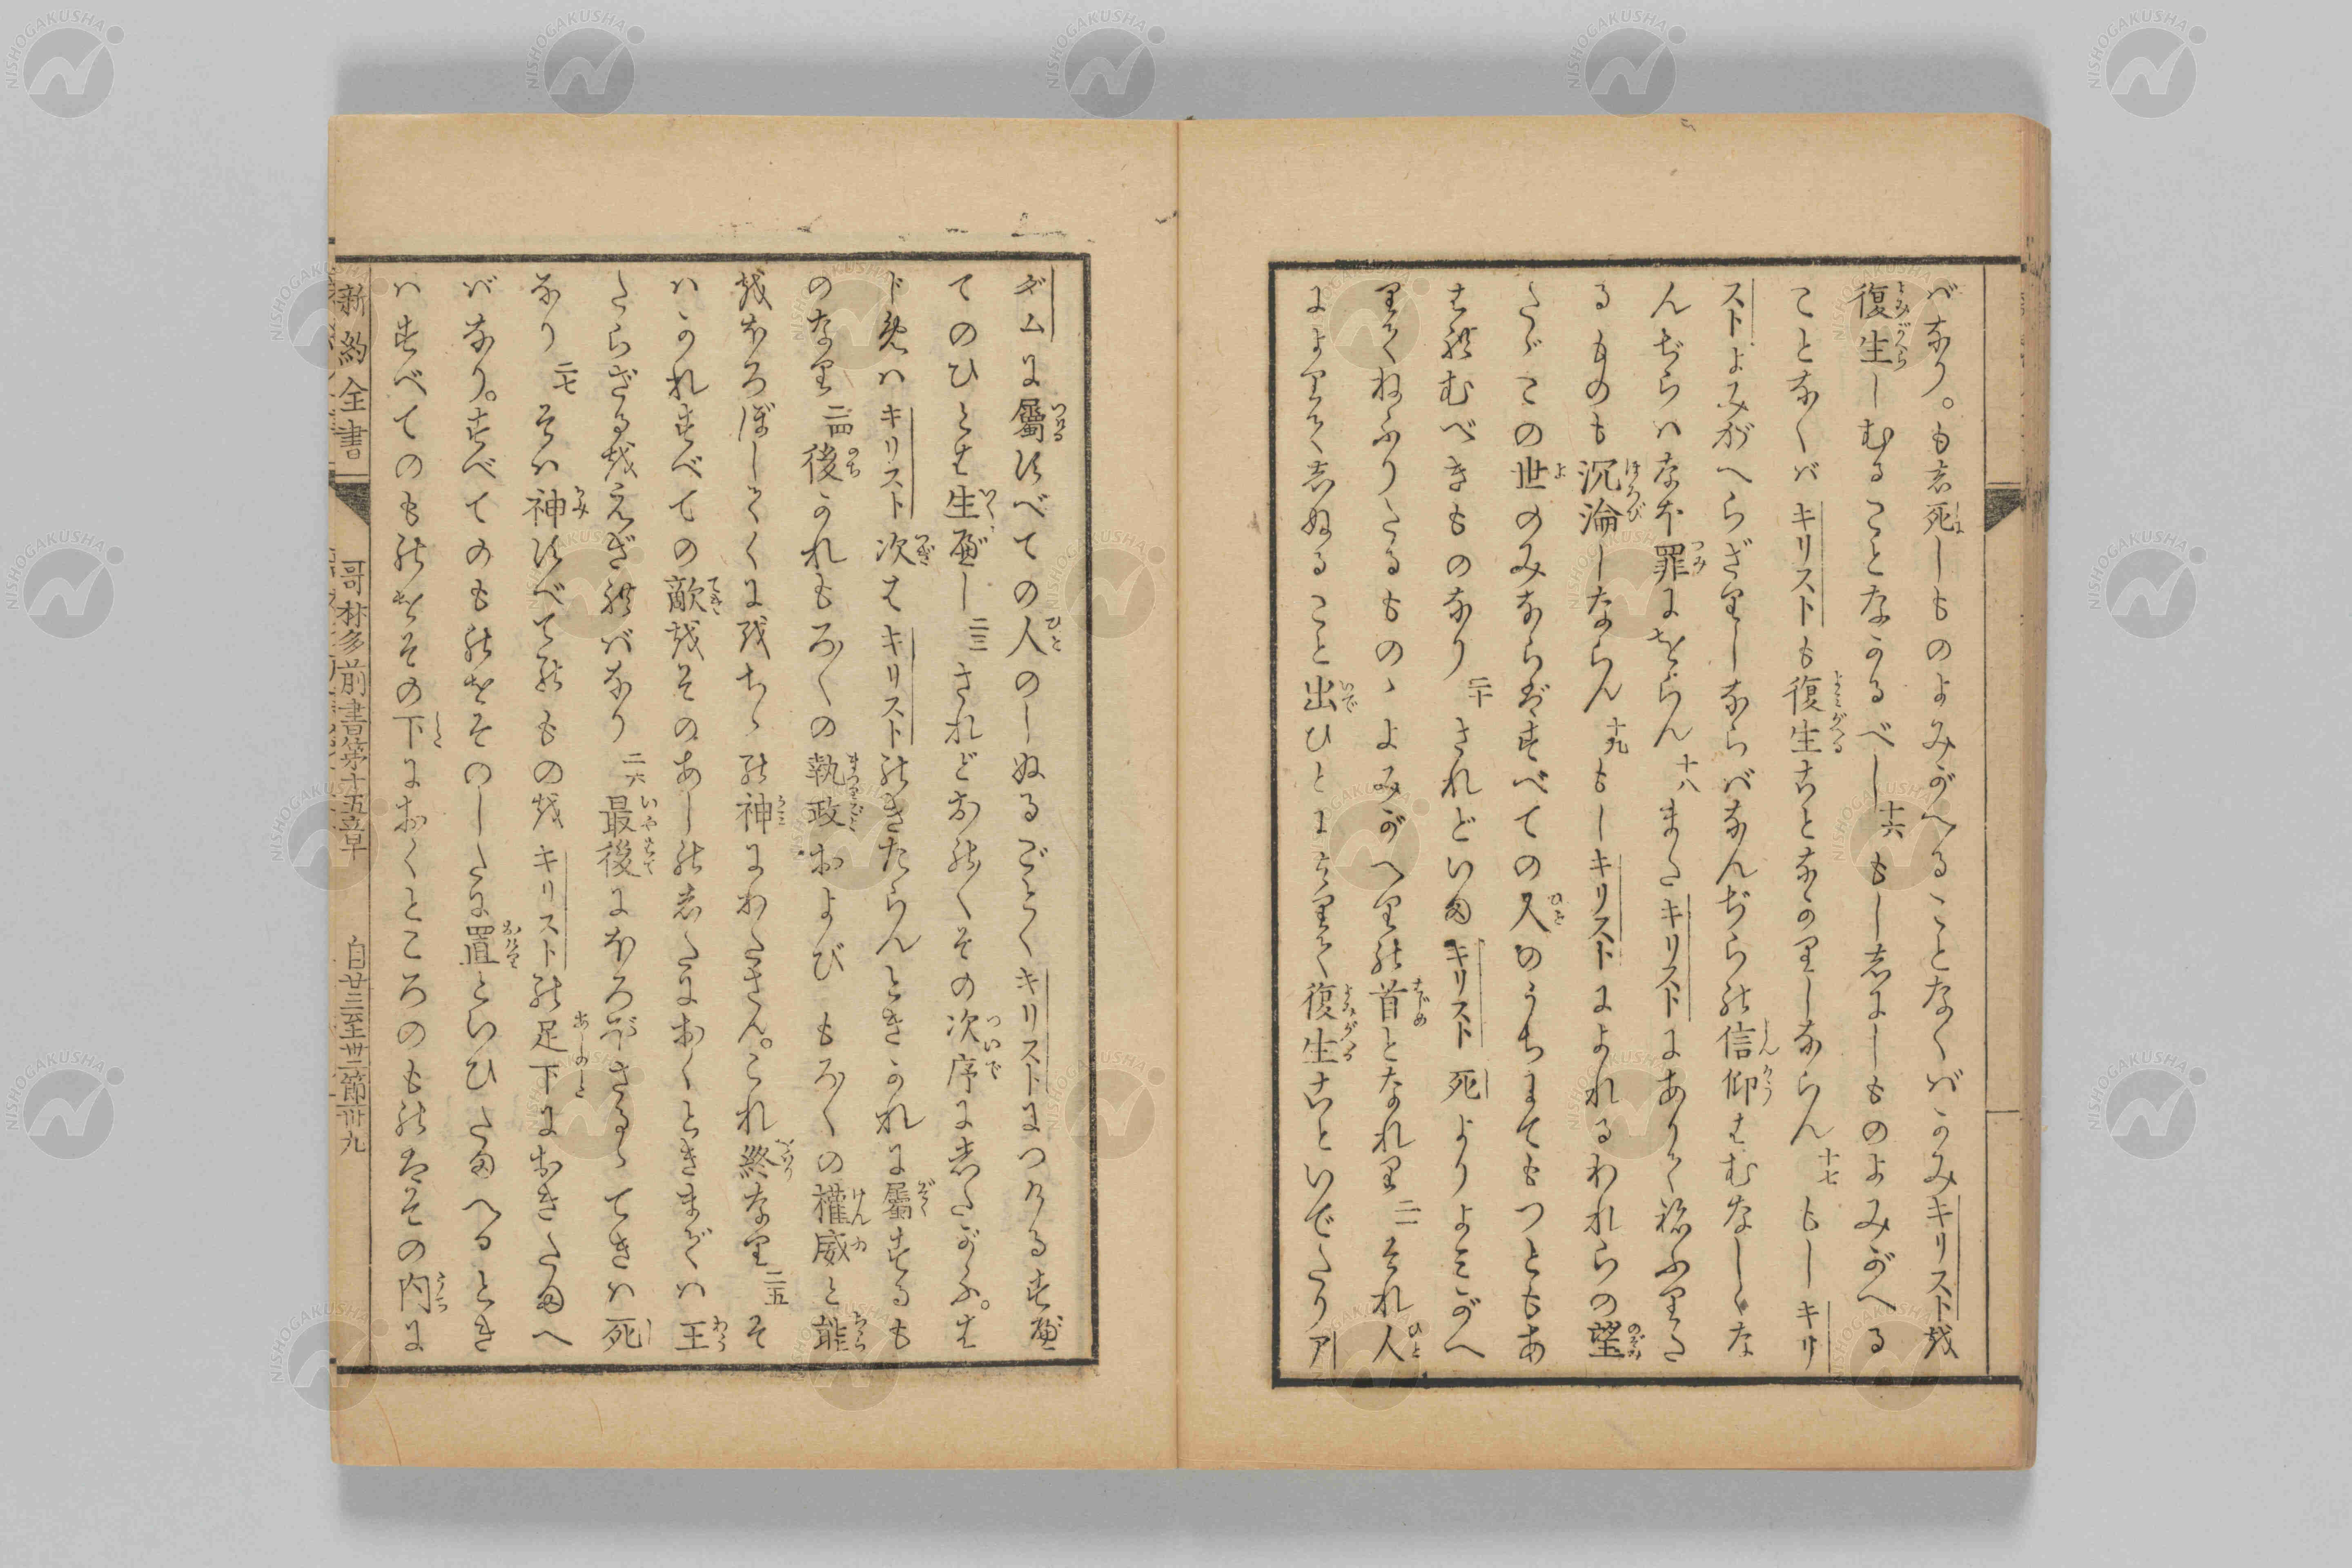 バなり。もし死しもののよみがへることなくバかみキリストを
復生しむることなかるべし十六もし志にしものよみがへる
ことなくバキリストも復生ことなかりしならん十七もしキリ
ストよみがへらざりしならバなんぢらの信仰はむなしくな
んぢらハなほ罪にをらん十八またキリストにありて祢ふりた
るものも沉淪しならん十九もしキリストによれるわれらの望
たゞこの世のみならバすべての人のうちにてもつともあ
はれむべきものなり二十されどいまキリスト死よりよミがへ
りてねふりたるものゝよみがへりの首となれり二一それ人
によりて志ぬること出ひとによりて復生こといでたりア
ダムに屬すべての人のしぬるごとくキリストにつけるすべ
てのひとは生べし二三されどおのくその次序に志たがふ。は
じめハキリスト次はキリストのきたらんときかれに屬するも
のなり二四後かれもろくの執政およびもろくの權威と能
をほろぼしてくにをちゝの神にわたさん。これ終なり二五そ
ハかれすべての敵をそのあしの志たにおくときまでハ王
たらざるをえざれバなり二六最後にほろぼさるゝてきハ死
なり二七そハ神すべてのものをキリストの足下におきたまへ
バなり。すべてのものをそのしたに置といひたまへるとき
ハすべてのものをその下におくところのものはその内に
新約全書 哥林多前書第十五章 自廿三至廿二節 卅九